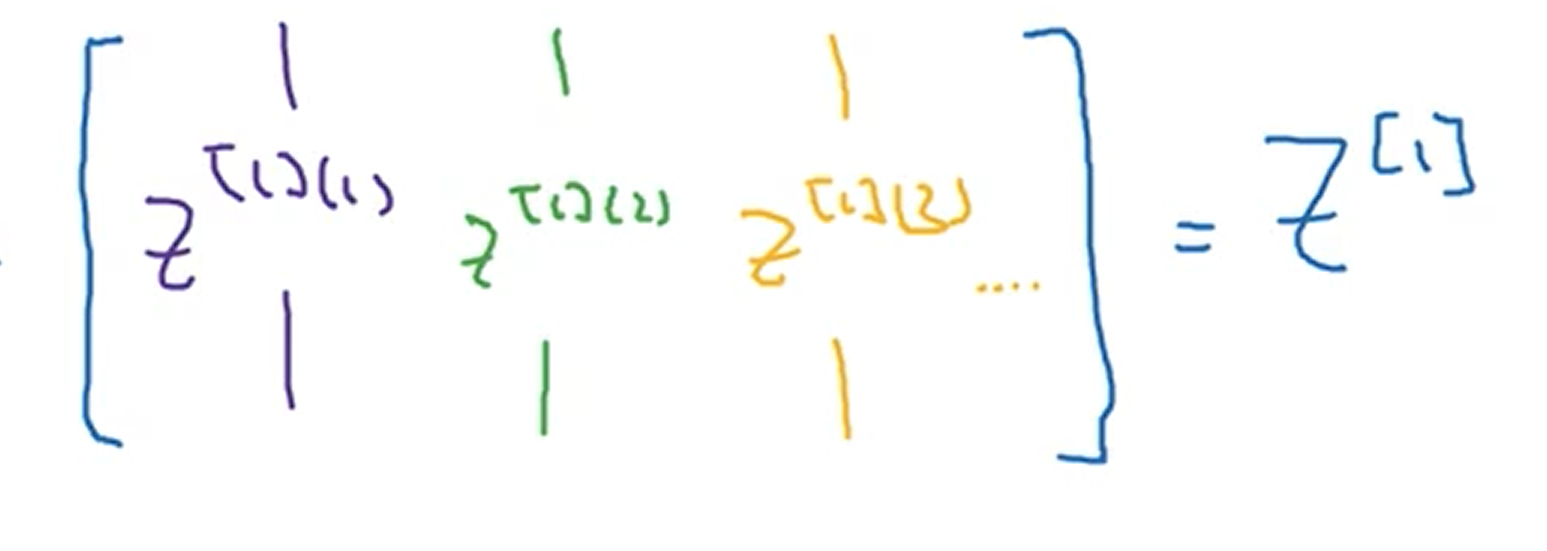 [ z^{[1](1)} z^{[1](2)} z^{[1](3)} .... ] = Z^{[1]}